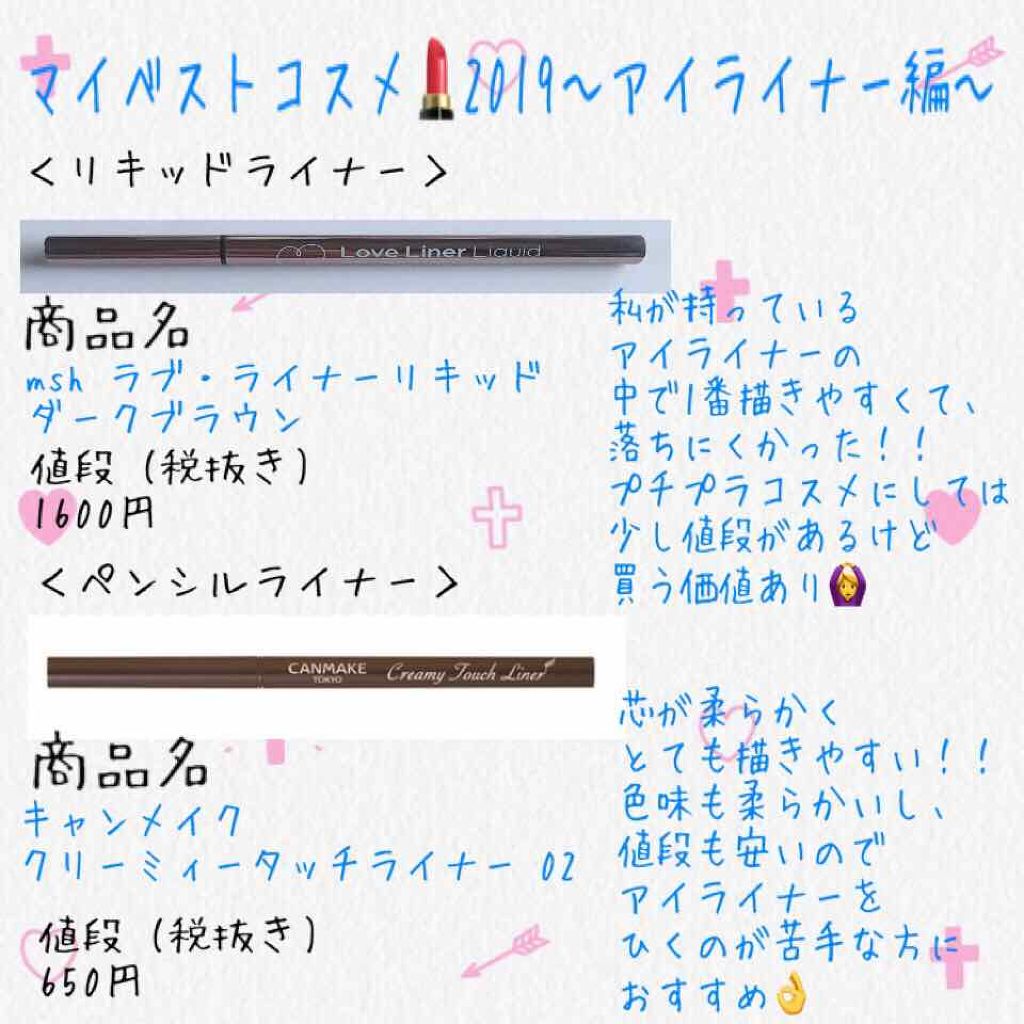 マイベストコスメ💄2019〜アイライナー編〜
＜リキッドライナー＞
Love Liner Liquid
商品名
msh ラブ・ライナーリキッド
ダークブラウン
値段（税抜き）
1600円
私が持っている
アイライナーの
中で1番描きやすくて、
落ちにくかった！！
プチプラコスメにしては
少し値段があるけど
買う価値あり🙆‍♀️
＜ペンシルライナー＞
CANMAKE
TOKYO
Creamy Touch Liner
商品名
キャンメイク
クリーミィータッチライナー 02
値段（税抜き）
650円
芯が柔らかく
とても描きやすい！！
色味も柔らかいし、
値段も安いので
アイライナーを
ひくのが苦手な方に
おすすめ👌